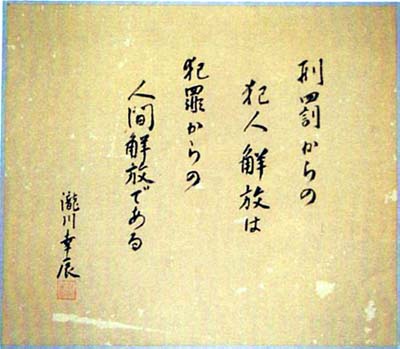 刑罰からの
犯人解放は
犯罪からの
人間解放である
瀧川幸辰